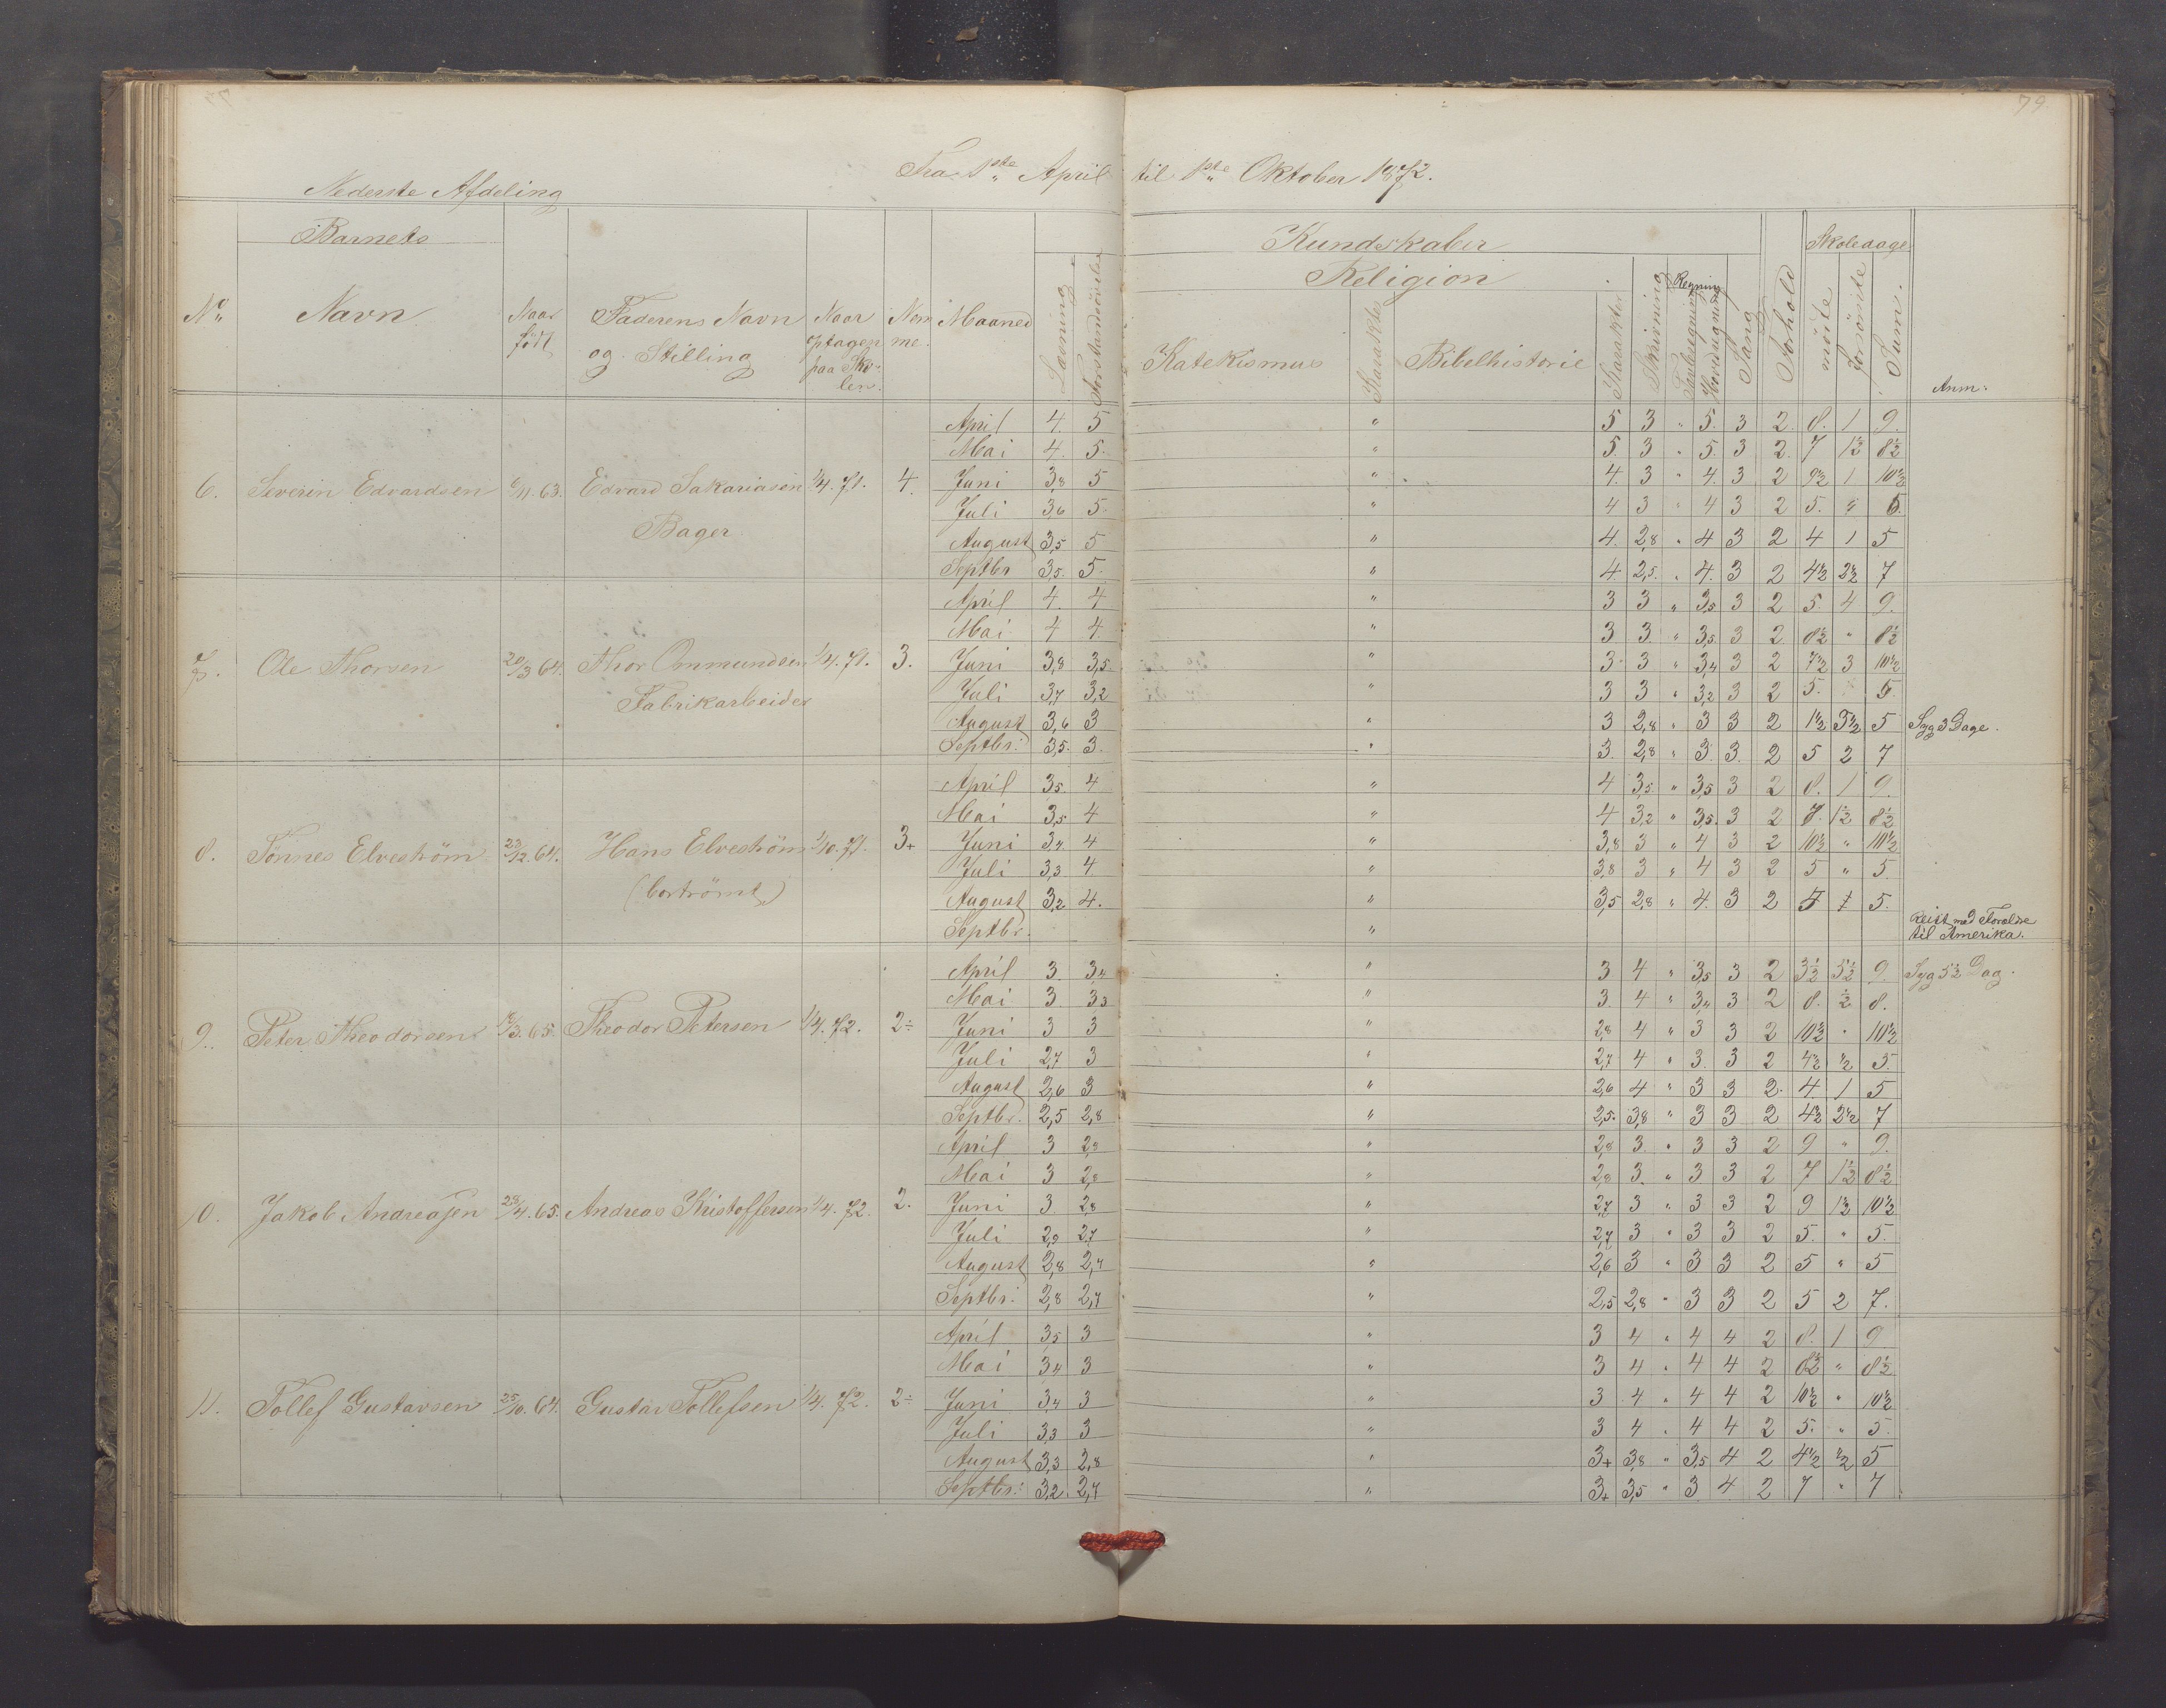 79.
Fra 1ste April til 1ste Oktober 1872.
Nederste Afdeling
Barnets
Kundskaber
Skoledage
Religion
Regning
No
Navn
Naar født
Faderens Navn og Stilling
Naar optagen paa Skolen.
Nomme.
Maaned
Læsning
Forstandsøvelse
Katekismus
Karakter
Bibelhistorie
Karakter
Skrivning
Tavleregning
Hovedregning
Sang
Forhold
møtte
forsømte
Sum.
Anm:
6. Severin Edvardsen 6/11. 63. Edvard Sakariasen 1/4. 71. 4.
Bager
April 4. 5 " 5 3 " 5. 3 2. 8. 1 9.
Mai 4. 5. " 5. 3 " 5. 3 2. 7 1½ 8½
Juni 3,8 5 " 4. 3 " 4. 3 2 9½ 1 10½
Juli 3,6 5. " 4 3 " 4 3 2 5. " 5.
August 3,5 5 " 4. 2,8 " 4 3 2 4 1 5
Septbr 3,5. 5. " 4. 2,5. " 4. 3 2 4½ 2½ 7
7. Ole Thorsen 20/3 64. Thor Ommundsen 1/4. 71. 3.
Fabrikarbeider
April 4. 4 " 3 3 " 3,5 3 2 5. 4 9.
Mai 4 4 " 3 3. " 3,5. 3 2 8½ " 8½
Juni 3,8 3,5. " 3 3 " 3,4 3 2 7½ 3 10½
Juli 3,7 3,2 " 3 3 " 3,2 3 2 5. 5.
August 3,6 3 " 3 2,8 " 3 3 2 1½ 3½ 5 Syg 3 Dage.
Septbr: 3,5. 3. " 3. 2,8 " 3. 3. 2 5 2 7
8. Tønnes Elvestrøm 23/12. 64. Hans Elvestrøm 1/10. 71. 3+
(bortrømt)
April 3,5. 4 " 4 3,5. " 3,5 3 2 8. 1 9.
Mai 3,5 4 " 4 3,2 " 3,5. 3 2 7. 1½ 8½
Juni 3,4 4 " 3,8 3 " 4 3 2 10½ " 10½
Juli 3,3 4 " 3,8 3 " 4 3 2 5 " 5.
August 3,2 4. " 3,5 2,8 " 4. 3 2 4 1 5.
Septbr. "
Reist med Forældre
til Amerika.
9. Peter Theodorsen /3. 65. Theodor Petersen 1/4. 72. 2÷
April 3. 3,4 " 3 4 " 3,5 3 2 3½ 5½ 9. Syg 5½ Dag.
Mai 3. 3,3 " 3. 4 " 3,4 3 2 8. ½ 8.
Juni 3 3 " 2,8 4 " 3 3 2 10½ " 10½
Juli 2,7 3 " 2,7 4 " 3. 3 2 4½ ½ 5.
August 2,6 3 " 2,6 4 " 3 3 2. 4. 1 5
Septbr. 2,5 2,8 " 2,5. 3,8 " 3 3 2 4½ 2½ 7
10. Jakob Andreasen 28/4. 65. Andreas Kristoffersen 1/4. 72. 2.
April 3 2,9 " 2,8 3. " 3 3 2 9 " 9.
Mai 3 2,8 " 2,8 3. " 3 3 2 7 1½ 8½
Juni 3. 2,8 " 2,7 3 " 3 3 2 9 1½ 10½
Juli 2,9 2,7 " 2,7 3 " 3 3 2 5. " 5.
August 2,8 2,7 " 2,6 3 " 3 3 2 5 " 5
Septbr. 2,8 2,7 " 2,5 2,8 " 3 3 2 5 2 7.
11. Tollef Gustavsen 25/10. 64. Gustav Tollefsen 1/4. 72. 2÷
April 3,5 3 " 3 4 " 4 4 2 8. 1 9
Mai 3,4 3 " 3 4 " 4 4 2 8½ " 8½
Juni 3,4 3 " 3 4 " 4 4 2 10½ " 10½
Juli 3,3 3 " 3 4 " 4 4 2 5. " 5.
August 3,3 2,8 " 3+ 3,8 " 3,5 4 2 4½ ½ 5
Septbr: 3,2. 2,7 " 3+ 3,5 " 3 4 2 7 " 7